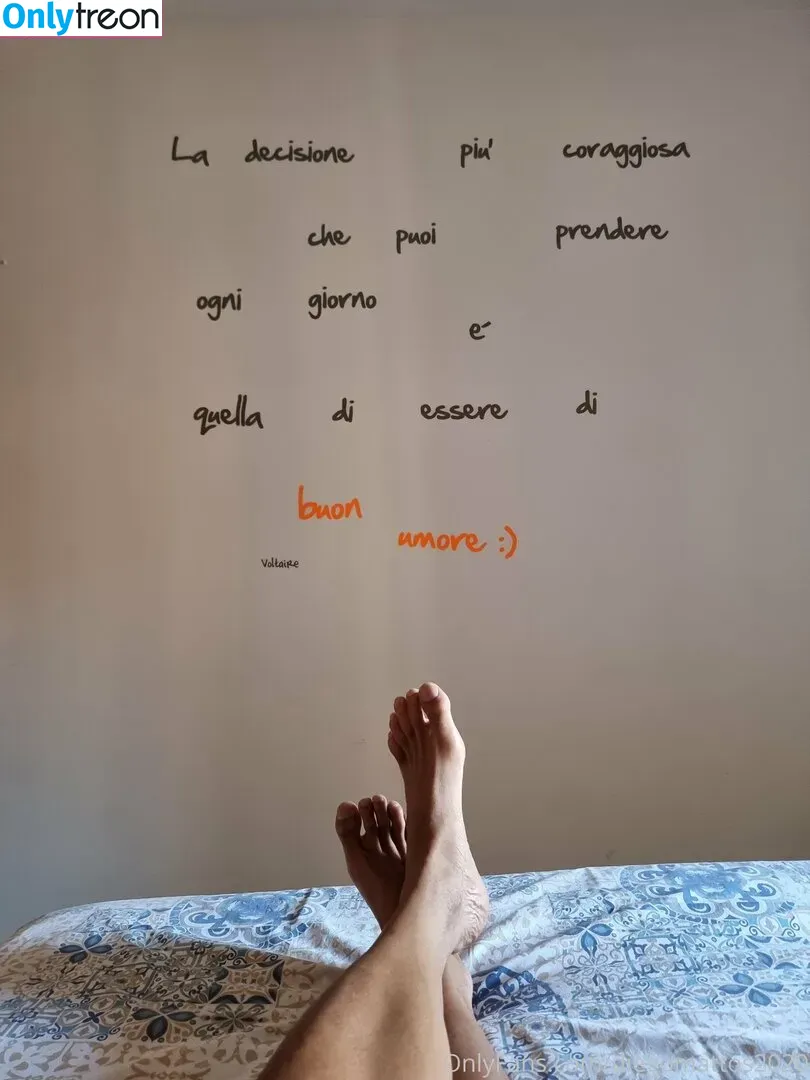 Onlytreon
La decisione piu' coraggiosa
che puoi prendere
ogni giorno
e´
quella di essere di
buon
umore :)
Voltaire